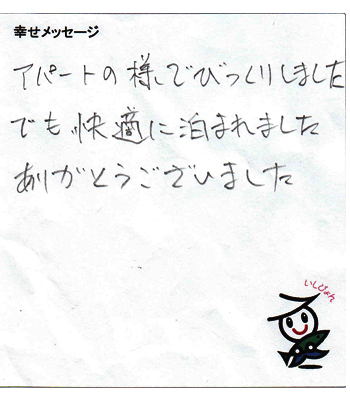 幸せメッセージ
アパートの様でびっくりしました
でも快適に泊まれました
ありがとうございました
いしぴょん